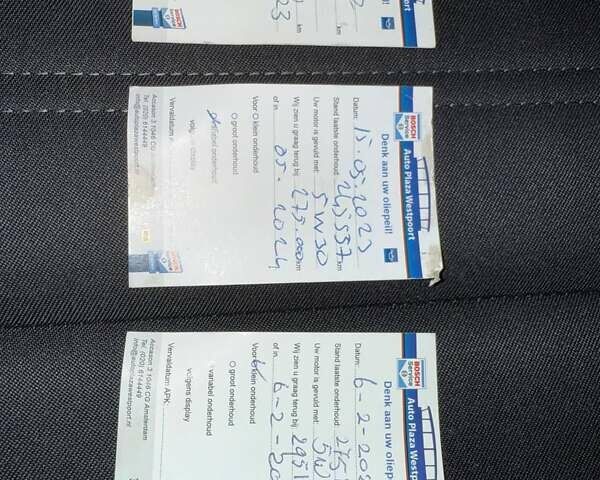 23
km
km
BOSCH
Service
Auto Plaza Westpoort
Denk aan uw oliepeil!
Datum: 15.05.2023
Stand laatste onderhoud: 245537 km
Uw motor is gevuld met: 5W30
Wij zien u graag terug bij: 275.000 km
of in 05-2024
Voor: O klein onderhoud
O groot onderhoud
variabel onderhoud
Vervaldatum
Accason 3 1046 CG
Tel. (020) 6144449
info@autoplazawestpoort.nl
BOSCH
Service
Auto Plaza Westp
Denk aan uw oliepei
Datum: 6-2-202
Stand laatste onderhoud: 275
Uw motor is gevuld met: 5W
Wij zien u graag terug bij: 295
of in 6-2-20
Voor: klein onderhoud
O groot onderhoud
variabel onderhoud
volgens display
Vervaldatum APK:
Accason 3 1046 CG Amsterdam
Tel. (020) 6144449
info@autoplazawestpoort.nl